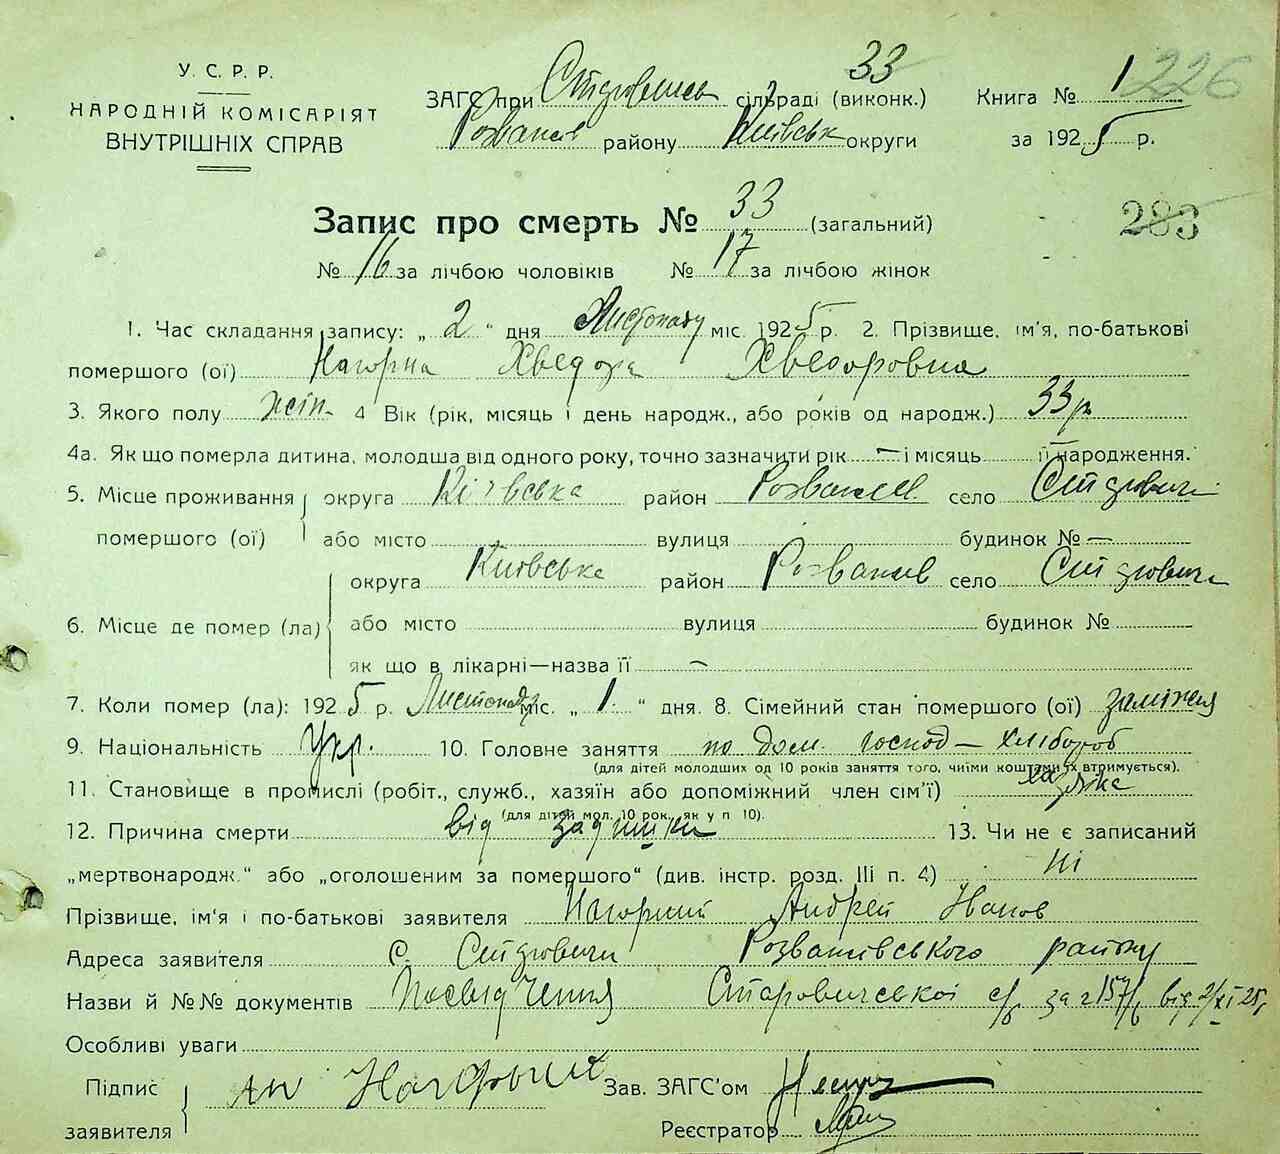 У. С. Р. Р.
НАРОДНІЙ КОМІСАРІЯТ
ВНУТРІШНІХ СПРАВ
ЗАГС при сільраді (виконк.) 33
Розважів району Київськ округи
Книга № 1 226
за 1925 р.
283
Запис про смерть № 33 (загальний)
№ 16 за лічбою чоловіків № 17 за лічбою жінок
1. Час складання запису: „ 2 “ дня Листопаду міс. 1925 р. 2. Прізвище, ім'я, по-батькові
помершого (ої) Нагорна Хведора Хведоровна
3. Якого полу жін. 4 Вік (рік, місяць і день народж., або років од народж.) 33 р
4а. Як що померла дитина, молодша від одного року, точно зазначити рік — і місяць її народження.
5. Місце проживання округа Київська район Розважів. село
помершого (ої) або місто вулиця будинок № —
округа Київська район Розважів село
6. Місце де помер (ла) або місто вулиця будинок №
як що в лікарні—назва її —
7. Коли помер (ла): 1925 р. Листопаду міс. „ 1 “ дня. 8. Сімейний стан помершого (ої) заміжня
9. Національність Укр. 10. Головне заняття по дом. господ — хлібороб
(для дітей молодших од 10 років заняття того, чиїми коштами їх втримується).
11. Становище в промислі (робіт., служб., хазяїн або допоміжний член сім'ї) хазяйка
(для дітей мол. 10 рок., як у п 10).
12. Причина смерти від задишки 13. Чи не є записаний
„мертвонародж.“ або „оголошеним за помершого“ (див. інстр. розд. III п. 4) ні
Прізвище, ім'я і по-батькові заявителя Нагорний Андрей Иванов
Адреса заявителя с. Розважівського району
Назви й №№ документів Посвідчення с/р за ч 157 від 2/XI 25 р
Особливі уваги
Підпис
заявителя Нагорный
Зав. ЗАГС'ом
Реєстратор